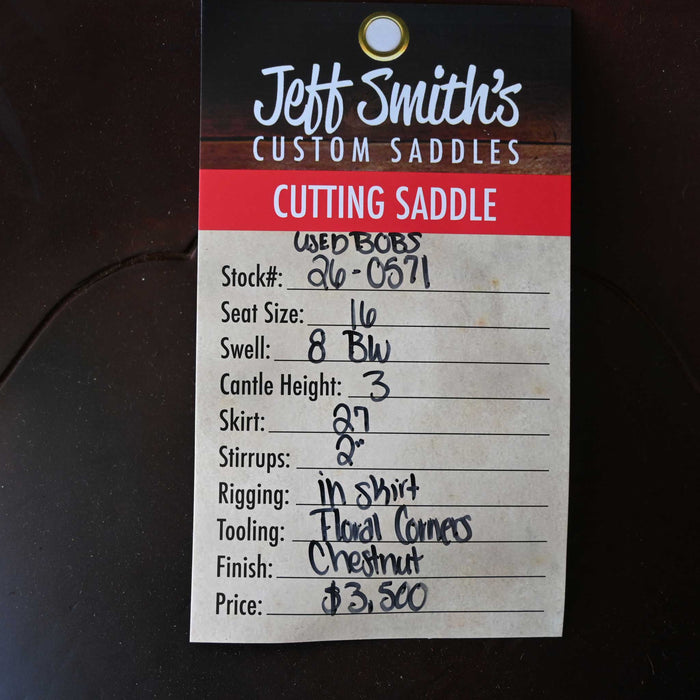 Jeff Smith's
CUSTOM SADDLES
CUTTING SADDLE
USED BOBS
Stock#: 26-0571
Seat Size: 16
Swell: 8 BW
Cantle Height: 3
Skirt: 27
Stirrups: 2"
Rigging: in skirt
Tooling: Floral Corners
Finish: Chestnut
Price: $3,500